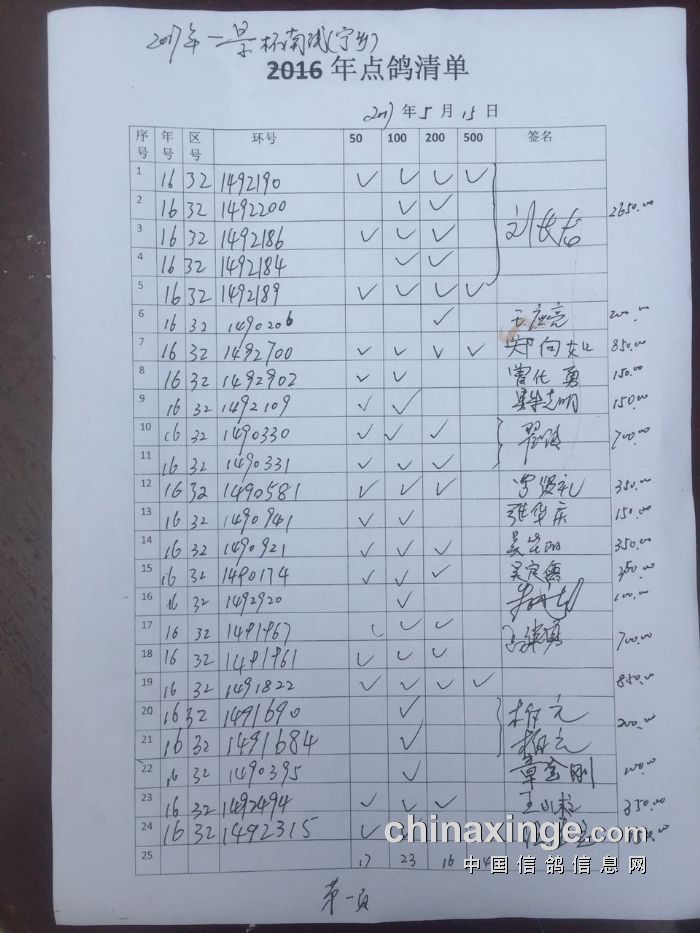 2017年一景杯南线(宁乡)
2016年点鸽清单
2017年5月15日
序号 年号 区号 环号 50 100 200 500 签名
1 16 32 1492190 ✓ ✓ ✓ ✓
2 16 32 1492200 ✓ ✓ 2650.00
3 16 32 1492186 ✓ ✓ ✓
4 16 32 1492184 ✓ ✓
5 16 32 1492189 ✓ ✓ ✓ ✓
6 16 32 1490206 ✓ 200.00
7 16 32 1492700 ✓ ✓ ✓ ✓ 郑向如 850.00
8 16 32 1492902 ✓ ✓ 曹代勇 150.00
9 16 32 1492109 ✓ ✓ 150.00
10 16 32 1490330 ✓ ✓ ✓ 700.00
11 16 32 1490331 ✓ ✓ ✓
12 16 32 1490581 ✓ ✓ ✓ 350.00
13 16 32 1490941 ✓ ✓ 张华庆 150.00
14 16 32 1490921 ✓ ✓ ✓ 350.00
15 16 32 1490174 ✓ ✓ ✓ 350.00
16 16 32 1492920 ✓ 100.00
17 16 32 1491967 ✓ ✓ ✓ 700.00
18 16 32 1491961 ✓ ✓ ✓
19 16 32 1491822 ✓ ✓ ✓ ✓ 850.00
20 16 32 1491690 ✓ 200.00
21 16 32 1491684 ✓
22 16 32 1490395 ✓ 章金刚 100.00
23 16 32 1492494 ✓ ✓ ✓ 350.00
24 16 32 1492315 ✓
25 17 23 16 4
chinaxinge.com
中国信鸽信息网
第一页